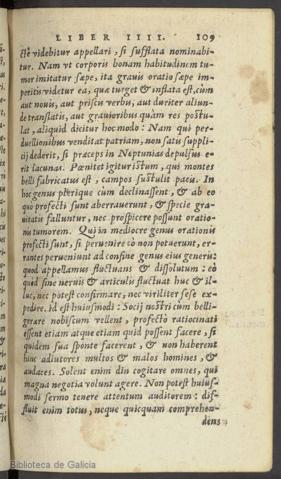 LIBER IIII. 109
ctè videbitur appellari, si sufflata nominabi-
tur. Nam vt corporis bonam habitudinem tu-
mor imitatur sæpe, ita grauis oratio sæpe im-
peritis videtur ea, quæ turget & inflata est, cùm
aut nouis, aut priscis verbis, aut duriter aliun-
de translatis, aut grauioribus quàm res postu-
lat, aliquid dicitur hoc modo: Nam qui per-
duellionibus venditat patriam, non satis suppli-
cij dederit, si præceps in Neptunias depulsus e-
rit lacunas. Pœnitet igitur istum, qui montes
belli fabricatus est, campos sustulit pacis. In
hoc genus plerique cùm declinassent, & ab eo
quo profecti sunt aberrauerunt, & specie gra-
uitatis falluntur, nec prospicere possunt oratio-
nis tumorem. Qui in mediocre genus orationis
profecti sunt, si peruenire eò non potuerunt, er-
rantes perueniunt ad confine genus eius generis:
quod appellamus fluctuans & dissolutum: eò
quòd sine neruis & articulis fluctuat huc & il-
luc, nec potest confirmare, nec viriliter sese ex-
pedire. id est huiusmodi: Socij nostri cùm belli-
gerare nobiscum vellent, profectò ratiocinati
essent etiam atque etiam quid possent facere, si
quidem sua sponte facerent, & non haberent
hinc adiutores multos & malos homines, &
audaces. Solent enim diu cogitare omnes, qui
magna negotia volunt agere. Non potest huius-
modi sermo tenere attentum auditorem: dif-
fluit enim totus, neque quicquam comprehen-
dens
Biblioteca de Galicia